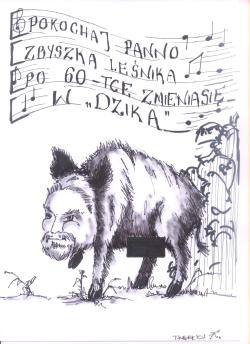 POKOCHAJ PANNO
ZBYSZKA LEŚNIKA
PO 60-TCE ZMIENIA SIĘ
W „DZIKA”